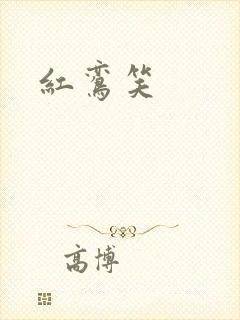 紅鸞笑
高博